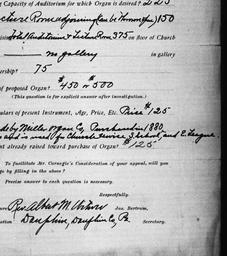 g Capacity of Auditorium for which Organ is desired? 225
150
Total Auditorium & Lecture Room 375 on Floor of Church
no gallery in gallery
ership? 75
of proposed Organ? $450 to $500
(This question is for explicit answer after investigation.)
ulars of present Instrument, Age, Price, Etc. Price $125
Made by Miller Organ Co, Purchased in 1880
and is used for Church service, S. School, and E. League.
nt already raised toward purchase of Organ? $125
To facilitate Mr. Carnegie's Consideration of your appeal, will you
ge by filling in the above?
Precise answer to each question is necessary.
Respectfully,
Rev. Albert M. Jas. Bertram,
Dauphin, Dauphin Co, Pa. Secretary.